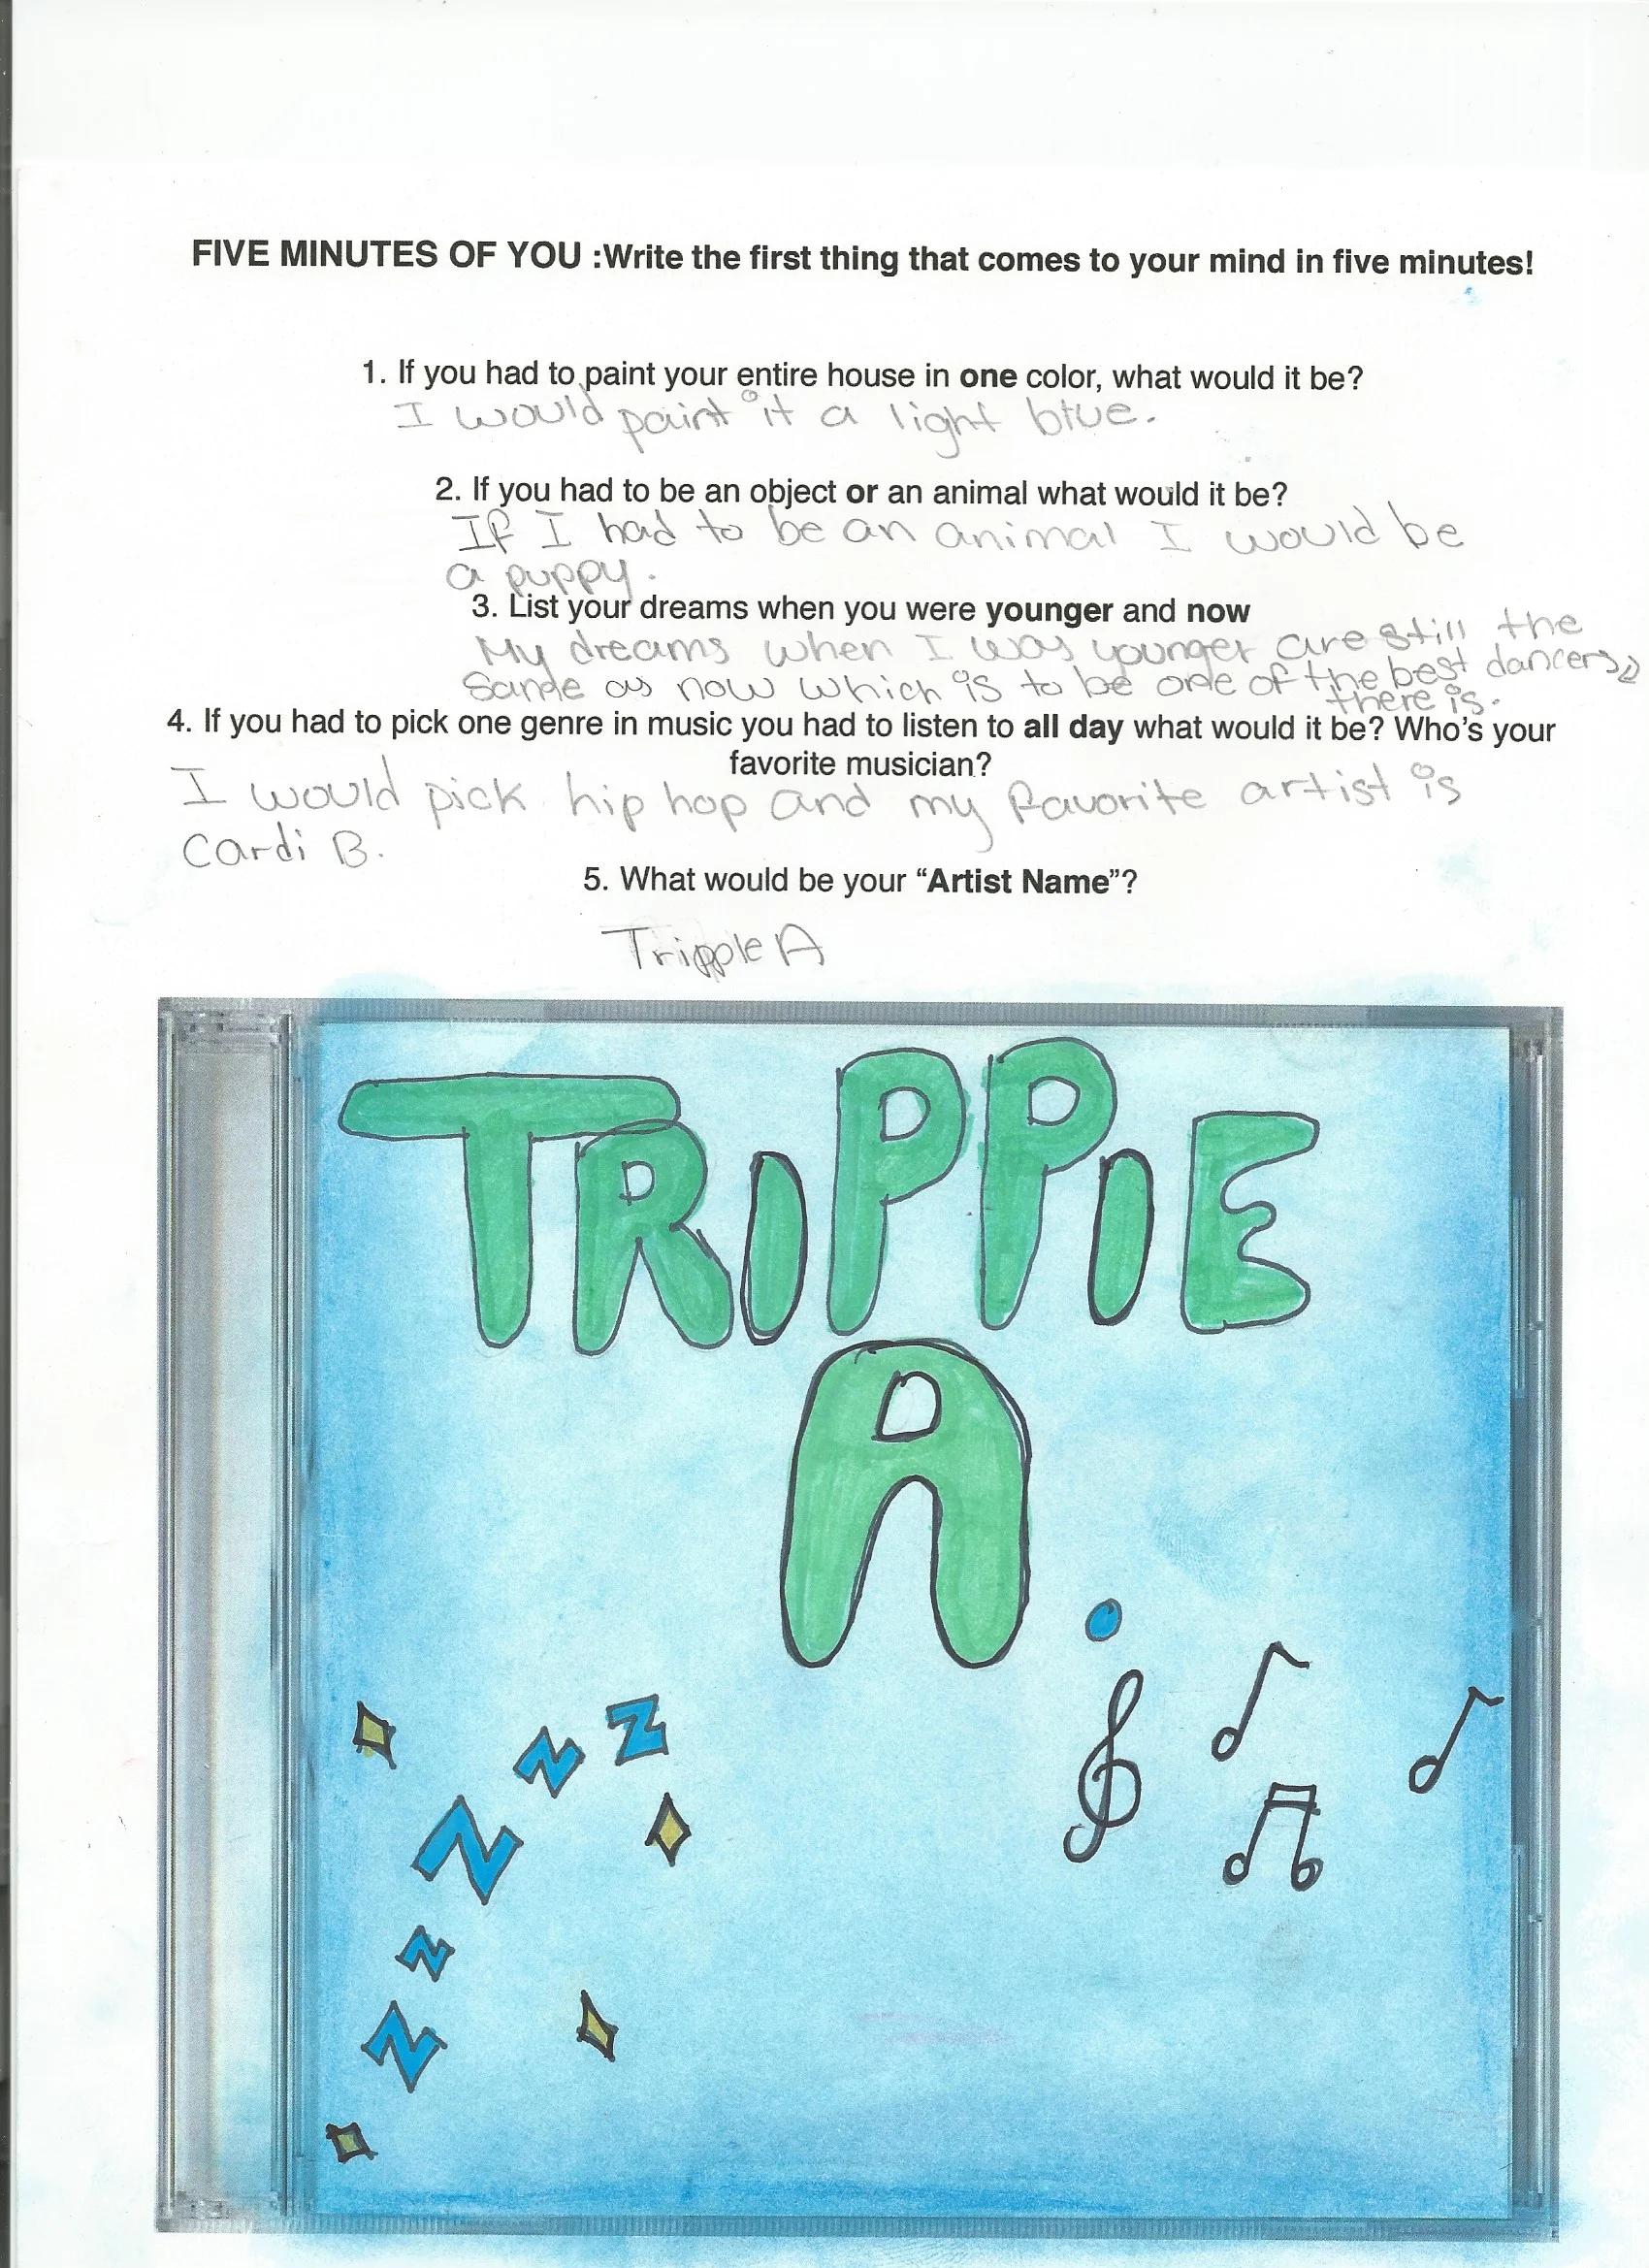 FIVE MINUTES OF YOU :Write the first thing that comes to your mind in five minutes!
1. If you had to paint your entire house in one color, what would it be?
I would paint it a light blue.
2. If you had to be an object or an animal what would it be?
If I had to be an animal I would be
a puppy.
3. List your dreams when you were younger and now
My dreams when I was younger are still the
same as now which is to be one of the best dancers
there is.
4. If you had to pick one genre in music you had to listen to all day what would it be? Who's your
favorite musician?
I would pick hip hop and my favorite artist is
Cardi B.
5. What would be your “Artist Name”?
Tripple A
TRIPPIE
A
Z
N
N
N
N